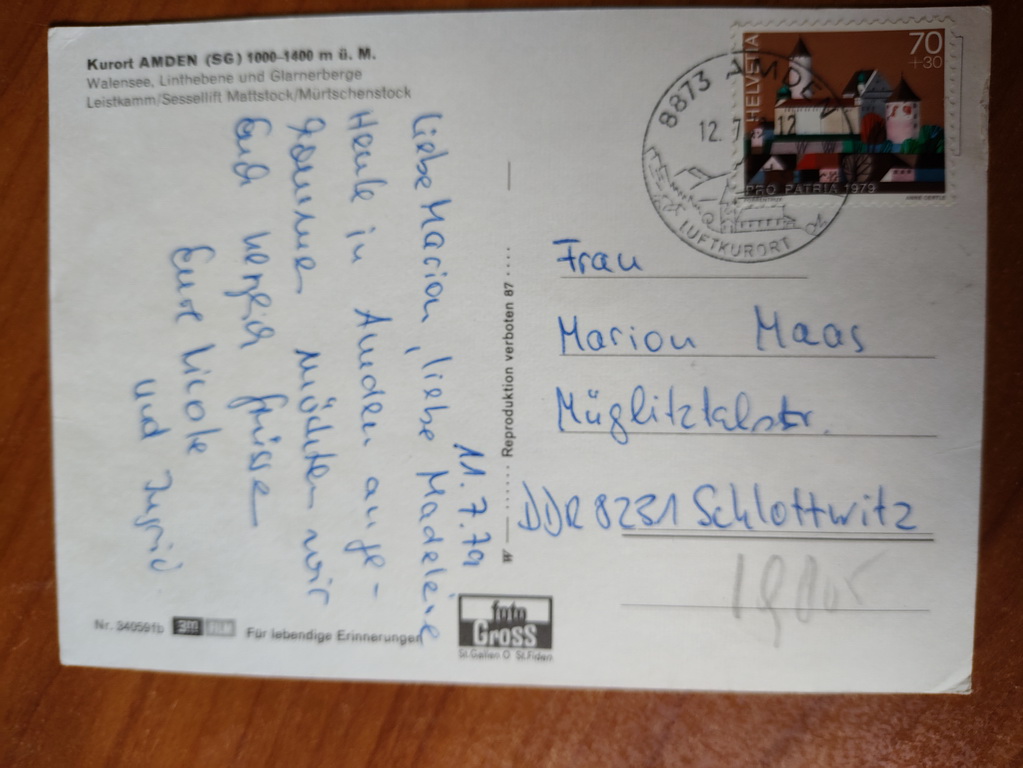 Kurort AMDEN (SG) 1000-1400 m ü. M.
Walensee, Linthebene und Glarnerberge
Leistkamm/Sessellift Mattstock/Mürtschenstock
11.7.79
Liebe Marion, liebe Madeleine
Heute in Amden ange-
kommen möchten wir
Euch herzlich grüssen
Eure Nicole
und Ingrid
Nr. 34059fb 3M
Für lebendige Erinnerungen
W — ...... Reproduktion verboten 87 .... —
foto
Gross
St.Gallen O St.Fiden
8873 AMDEN
12.7 12
LUFTKURORT
HELVETIA
70
+30
PRO PATRIA 1979
Frau
Marion Maas
Müglitztalstr.
DDR 8231 Schlottwitz